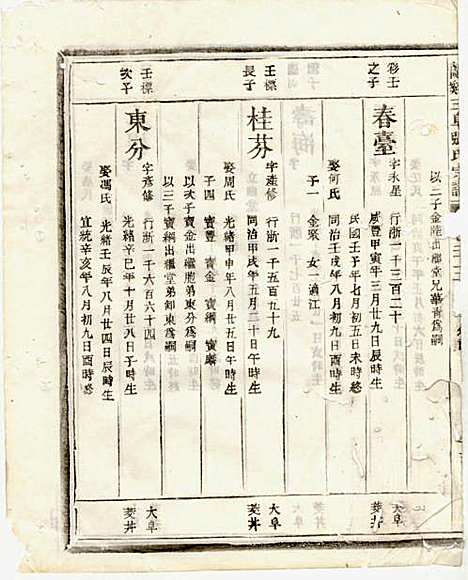 以二子金陞出繼堂兄華青爲嗣
彩壬
之子
春臺
字永星
行浙一千三百二十
咸豐甲寅年三月廿九日辰時生
民國壬子年七月初五日未時終
娶何氏
同治壬戌年八月初九日 時生
子一
金聚
女一
適江
大阜
菱井
壬標
長子
桂芬
字產修
行浙一千五百九十
同治甲戌年五月二十日午時生
娶周氏
光緒甲申年八月廿五日午時生
子四
寶豐
寶金
寶綱
以次子寶金出繼胞弟東分爲嗣
以三子寶綱出繼堂弟 東爲嗣
大阜
菱井
壬標
次子
東分
字彥修
行浙一千六百六十四
光緒辛巳年十月廿八日子時生
娶馮氏
光緒壬辰年八月廿四日辰時生
宣統辛亥年八月初九日酉時終
大阜
菱井